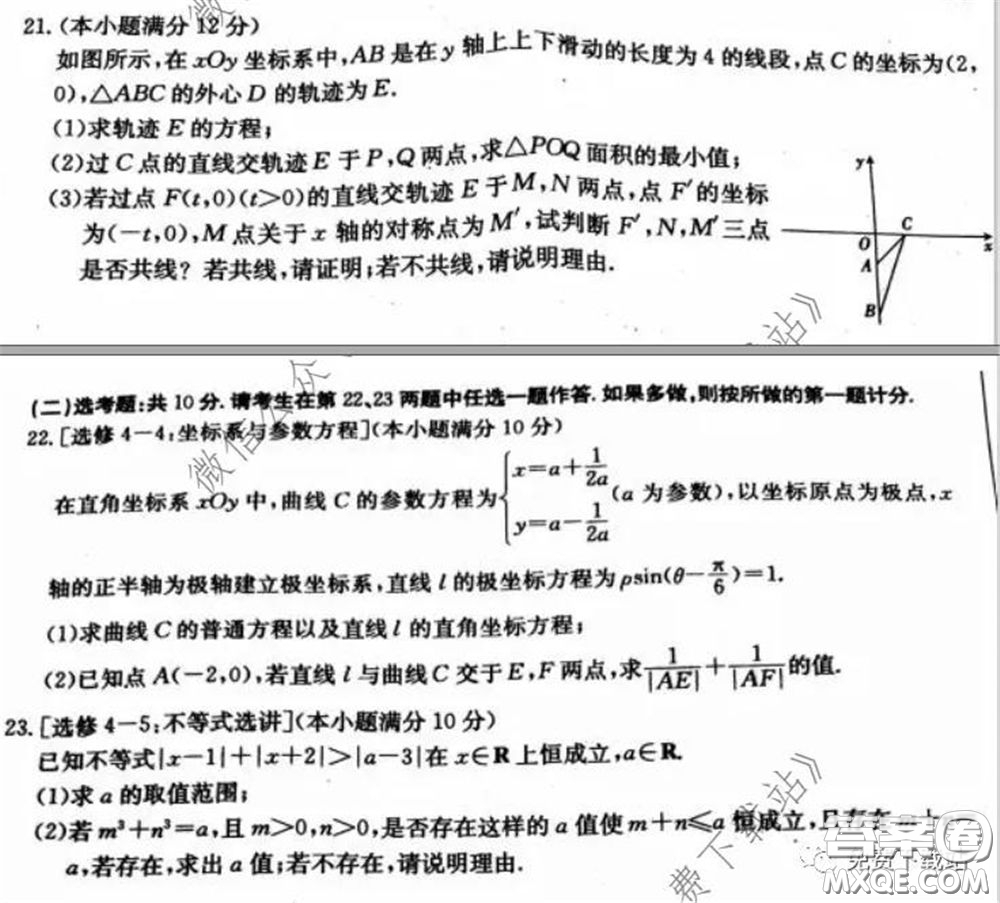 21.(本小题满分12分)
如图所示,在xOy坐标系中,AB是在y轴上上下滑动的长度为4的线段,点C的坐标为(2,
0),△ABC的外心D的轨迹为E.
(1)求轨迹E的方程;
(2)过C点的直线交轨迹E于P,Q两点,求△POQ面积的最小值;
(3)若过点F(t,0)(t>0)的直线交轨迹E于M,N两点,点F′的坐标
为(-t,0),M点关于x轴的对称点为M′,试判断F′,N,M′三点
是否共线?若共线,请证明;若不共线,请说明理由.
y
O
C
x
A
B
站》
微信公众
(二)选考题:共10分.请考生在第22、23两题中任选一题作答.如果多做,则按所做的第一题计分.
22.[选修4-4:坐标系与参数方程](本小题满分10分)
在直角坐标系xOy中,曲线C的参数方程为{x=a+1/2a y=a-1/2a (a为参数),以坐标原点为极点,x
轴的正半轴为极轴建立极坐标系,直线l的极坐标方程为ρsin(θ-π/6)=1.
(1)求曲线C的普通方程以及直线l的直角坐标方程;
(2)已知点A(-2,0),若直线l与曲线C交于E,F两点,求1/|AE|+1/|AF|的值.
23.[选修4-5:不等式选讲](本小题满分10分)
已知不等式|x-1|+|x+2|>|a-3|在x∈R上恒成立,a∈R.
(1)求a的取值范围;
(2)若m³+n³=a,且m>0,n>0,是否存在这样的a值使m+n≤a恒成立,且存在
a,若存在,求出a值;若不存在,请说明理由.
费下载站》
免费下载站
答案圈
MXQE.COM